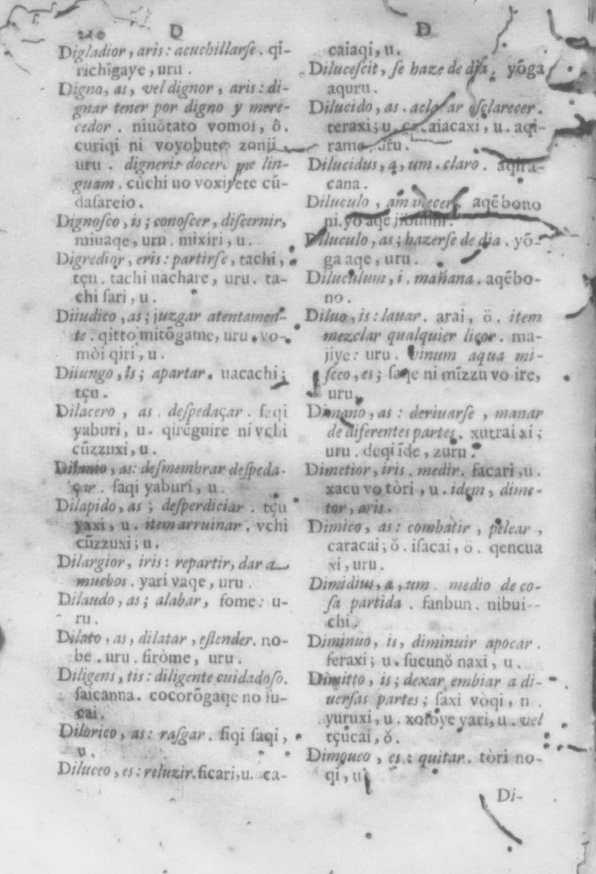 D
Digladior, aris: acuchillarse. qi-
richigaye, uru.
Digno, as, vel dignor, aris: di-
gnar tener por digno y mere-
cedor. niuŏtato vomoi, ŏ.
curiqi ni voyobute zonji
uru. digneris docer. me lin-
guam. cŭchi uo voxiyete cŭ-
dasareio.
Dignosco, is; conoscer, discernir,
miuaqe, uru. mixiri, u.
Digredior, eris: partirse, tachi,
tçu. tachi uachare, uru. ta-
chi sari, u.
Diiudico, as; juzgar atentamen-
te. qitto mitŏgame, uru. vo-
mòi qiri, u.
Diiungo, is; apartar. uacachi;
tçu.
Dilacero, as. despedaçar. saqi
yaburi, u. qireguire ni vchi
cŭzzuxi, u.
Dilanio, as: desmembrar despeda-
çar. saqi yaburi, u.
Dilapido, as; desperdiciar. tçu
yaxi, u. item arruinar. vchi
cŭzzuxi; u.
Dilargior, iris: repartir, dar a
muchos. yari vaqe, uru.
Dilaudo, as; alabar, fome: u-
ru.
Dilato, as, dilatar, estender. no-
be. uru. firòme, uru.
Diligens, tis: diligente cuidadoso.
saicanna. cocorŏgaqe no iu-
cai.
Dilorico, as: rasgar. fiqi saqi,
u.
Diluceo, es: reluzir. ficari, u. ca-
D
caiaqi, u.
Dilucescit, se haze de dia. yŏga
aquru.
Dilucido, as. aclarar esclarecer.
teraxi; u. aiacaxi, u. aqi-
rame, uru.
Dilucidus, a, um. claro. aqira-
cana.
Diluculo, amanecer. aqĕbono
ni. yo aqe
Diluculo, as; hazerse de dia. yŏ-
ga aqe, uru.
Diluculum, i. mañana. aqĕbo-
no.
Diluo, is: lauar. arai, ŏ. item
mezclar qualquier licor. ma-
jiye: uru. vinum aqua mi-
sceo, es; saqe ni mĭzzu vo ire,
uru.
Dimano, as: deriuarse, manar
de diferentes partes. xutrai xi;
uru. deqi ide, zuru.
Dimetior, iris. medir. facari, u.
xacu vo tòri, u. idem, dime-
tor, aris.
Dimico, as: combatir, pelear,
caracai; ŏ. isacai, ŏ. qencua
xi, uru.
Dimidius, a, um. medio de co-
sa partida. fanbun. nibui--
chi.
Diminuo, is, diminuir apocar.
feraxi; u. sucunŏ naxi, u.
Dimitto, is; dexar embiar a di-
uersas partes; saxi vòqi, u.
yuruxi, u. xofŏye yari, u. vel
tçucai, ŏ.
Dimoueo, es: quitar. tòri no-
qi, u.
Di-